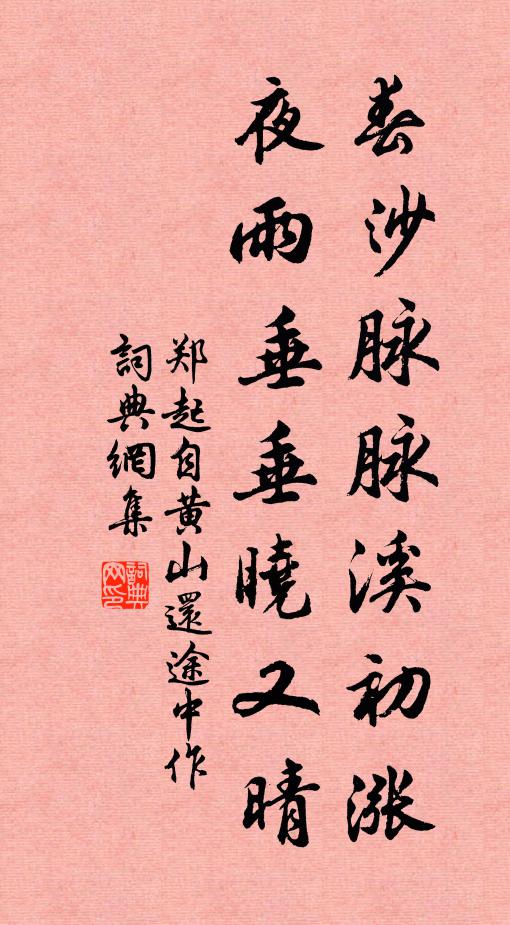 春沙脉脉溪初涨
夜雨垂垂曉又晴
郑起自黄山還途中作
詞典網集
詞典网印